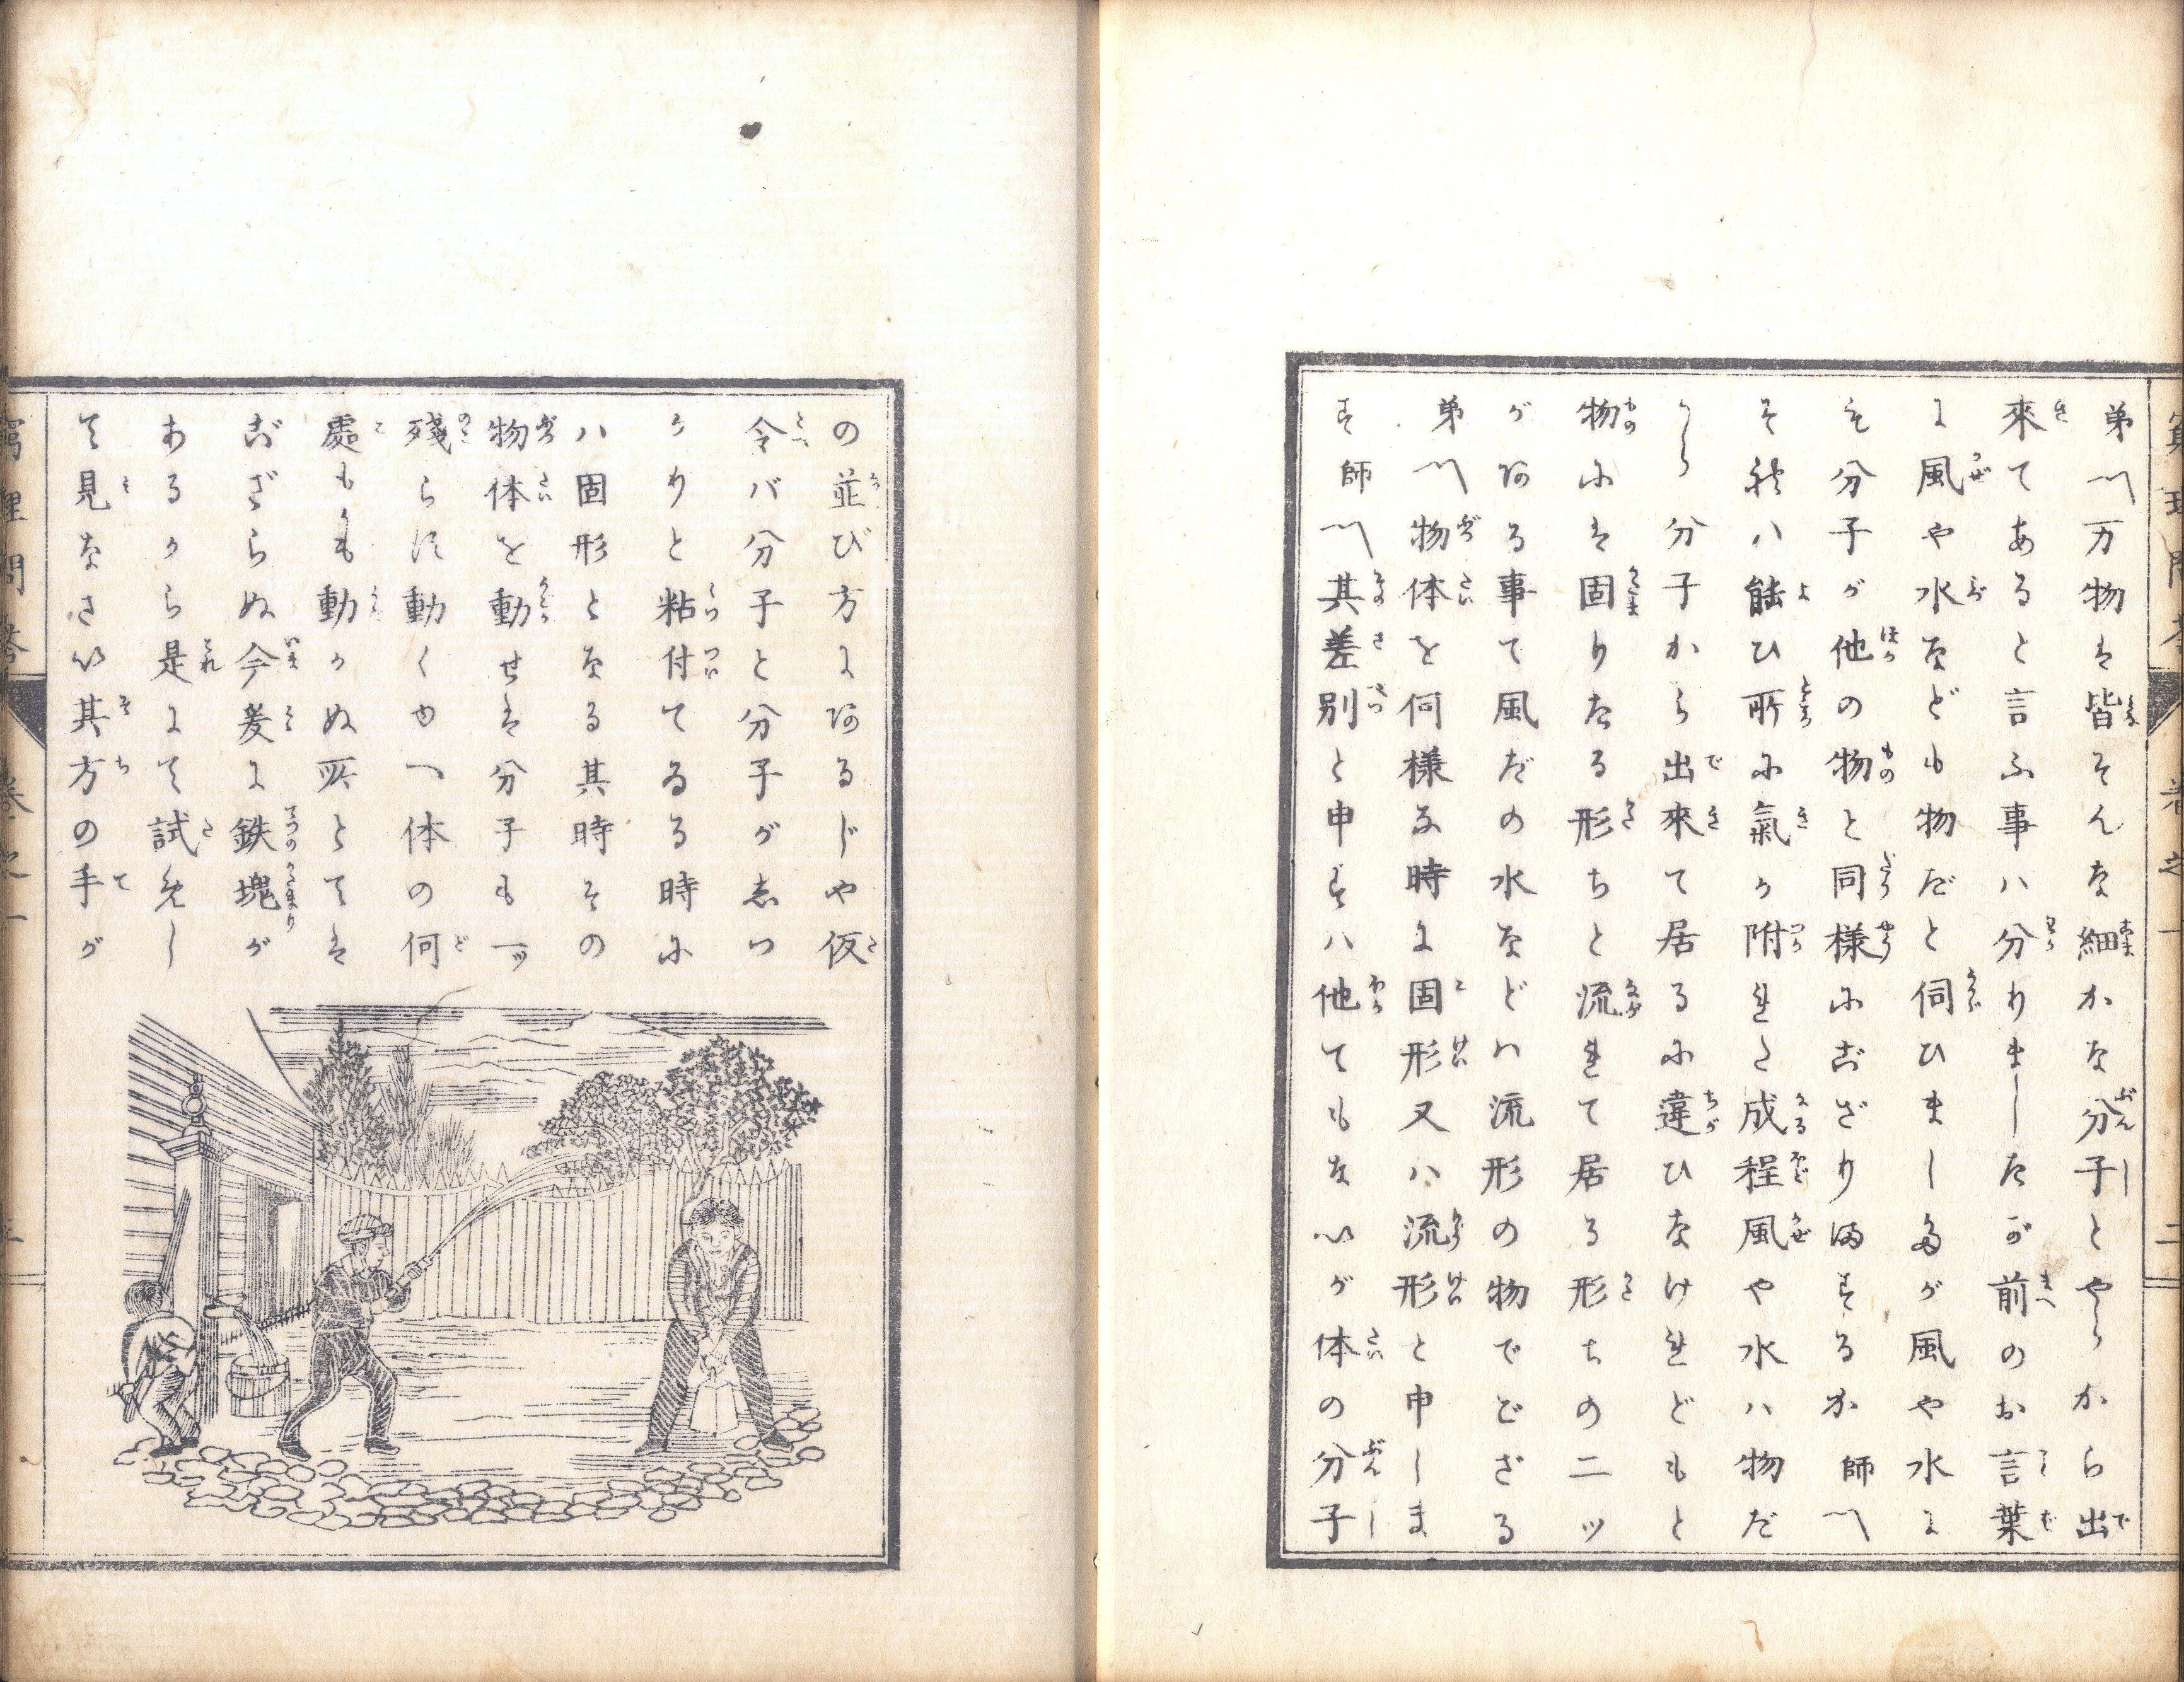 弟〽万物は皆そんな細かな分子とやらから出
來てあると言ふ事ハ分りましたが前のお言葉
に風や水なども物だと伺ひましたが風や水に
も分子が他の物と同様にござり升るか師〽
それハ能ひ所に氣が附れた成程風や水ハ物だ
から分子から出來て居るに違ひなけれどもと
物には固りたる形ちと流れて居る形ちの二ッ
がある事て風だの水などハ流形の物でござる
弟〽物体を何様な時に固形又ハ流形と申しま
す師〽其差別と申すハ他てもないが体の分子
の並び方にあるじや仮
令バ分子と分子がしつ
かりと粘付てゐる時に
ハ固形となる其時その
物体を動せば分子も一ッ
残らず動くゆへ体の何
處もかも動かぬ所とては
ござらぬ今爰に鉄塊が
あるから是にて試めし
て見なさい其方の手が
卷之一
二
窮理問答
卷之一
三